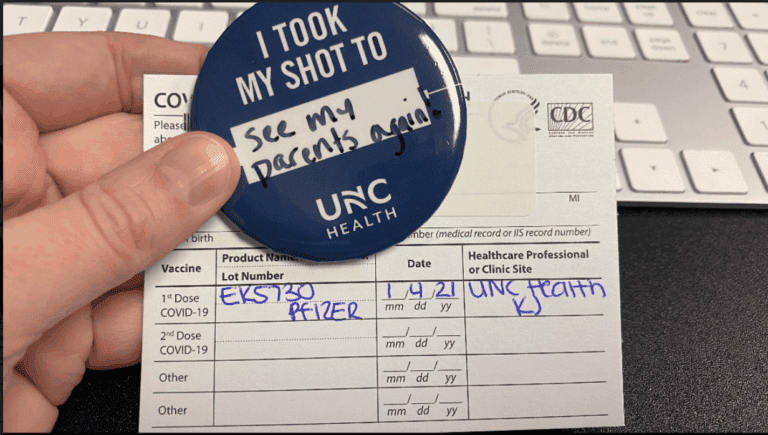 T Y U
delete end page down clear 7
4
I TOOK
MY SHOT TO
see my
parents again!
UNC
HEALTH
COV
Please
CDC
MI
birth
mber (medical record or IIS record number)
Vaccine
Product Name
Lot Number
Date
Healthcare Professional
or Clinic Site
1st Dose
COVID-19
EK5730
PFIZER
1/4/21
mm dd yy
UNC Health
KJ
2nd Dose
COVID-19
__/__/__
mm dd yy
Other
__/__/__
mm dd yy
Other
__/__/__
mm dd yy